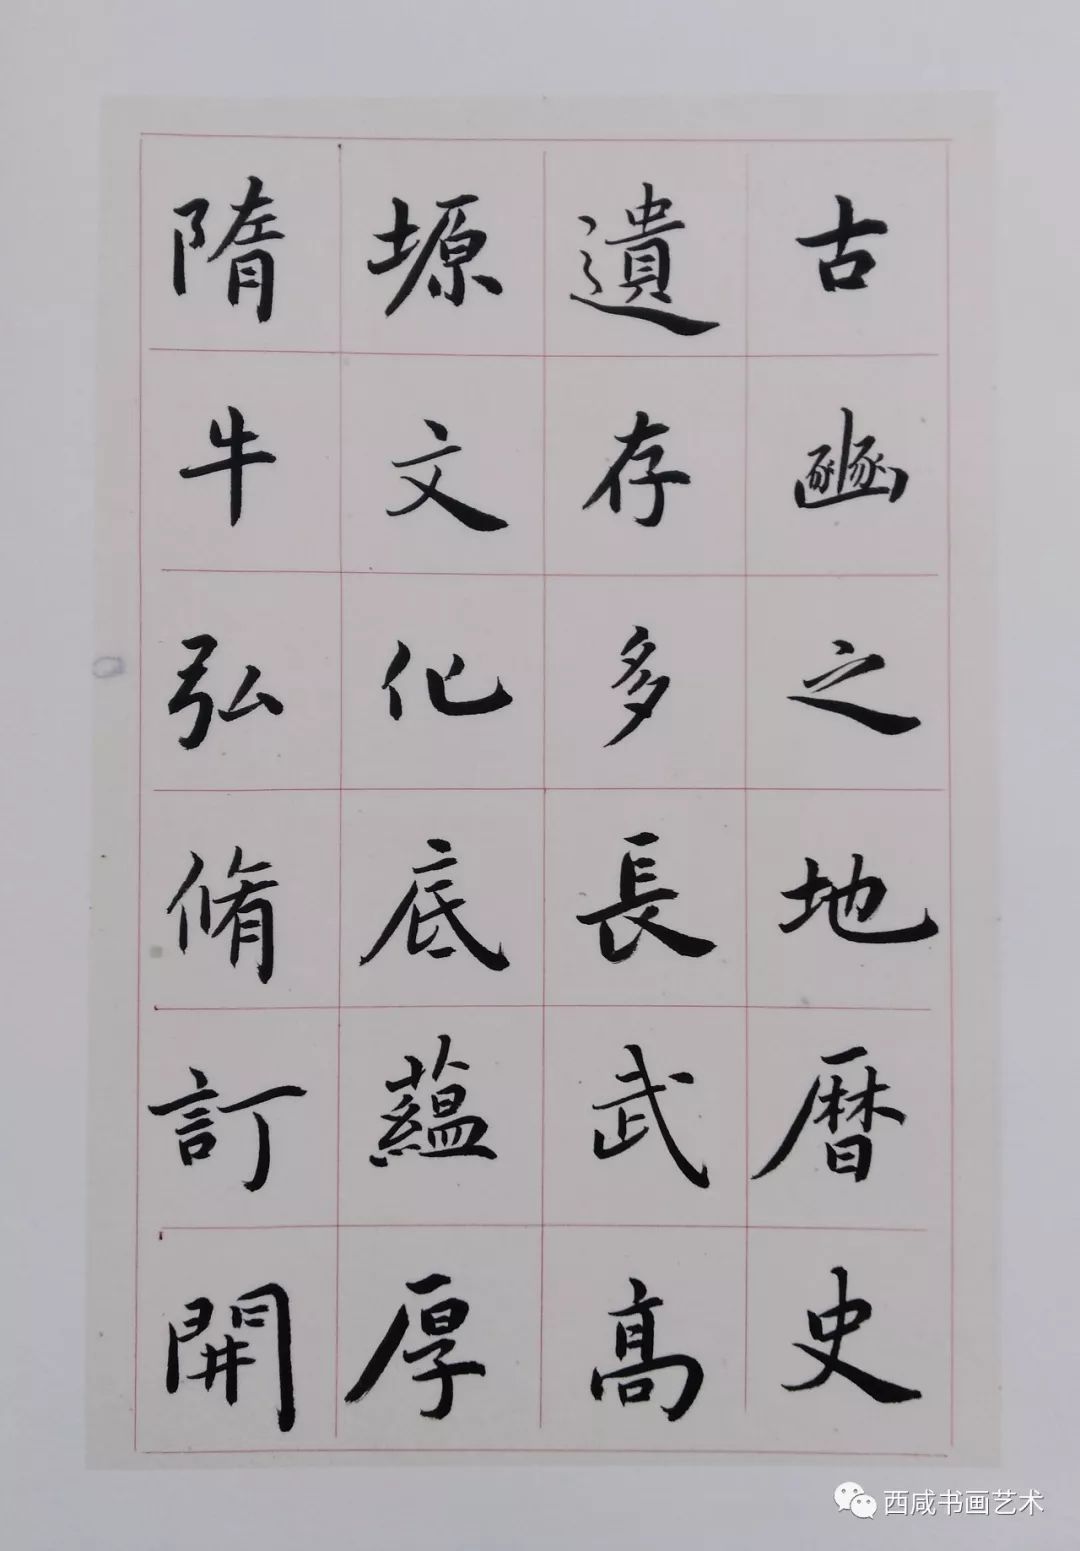 古豳之地曆史
遺存多長武高
塬文化底蘊厚
隋牛弘脩訂開
西咸书画艺术